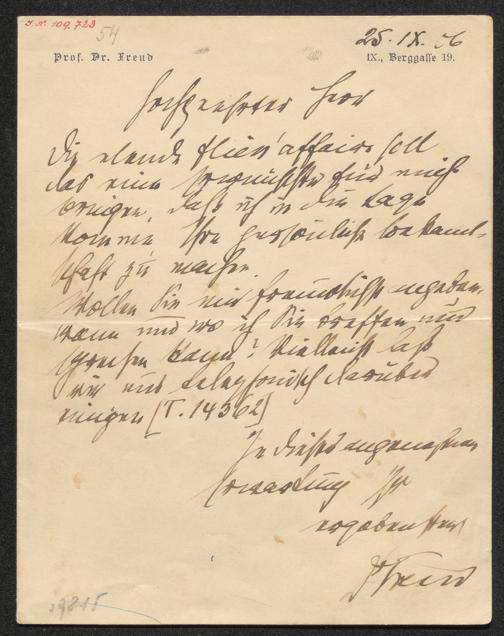 I. N. 109.723
54
25. IX. 06
Prof. Dr. Freud
IX., Berggasse 19.
Hochgeehrter Herr
Die elende Fliess'affaire soll
das eine Erwünschte für mich
bringen, daß ich in die Lage
komme Ihre persönliche Bekannt-
schaft zu machen.
Wollen Sie mir freundlichst angeben,
wann und wo ich Sie treffen und
sprechen kann? Vielleicht daß
wir uns telephonisch darüber
einigen [T. 14362]
In dieser angenehmen
Erwartung Ihr
ergebenster
Freud